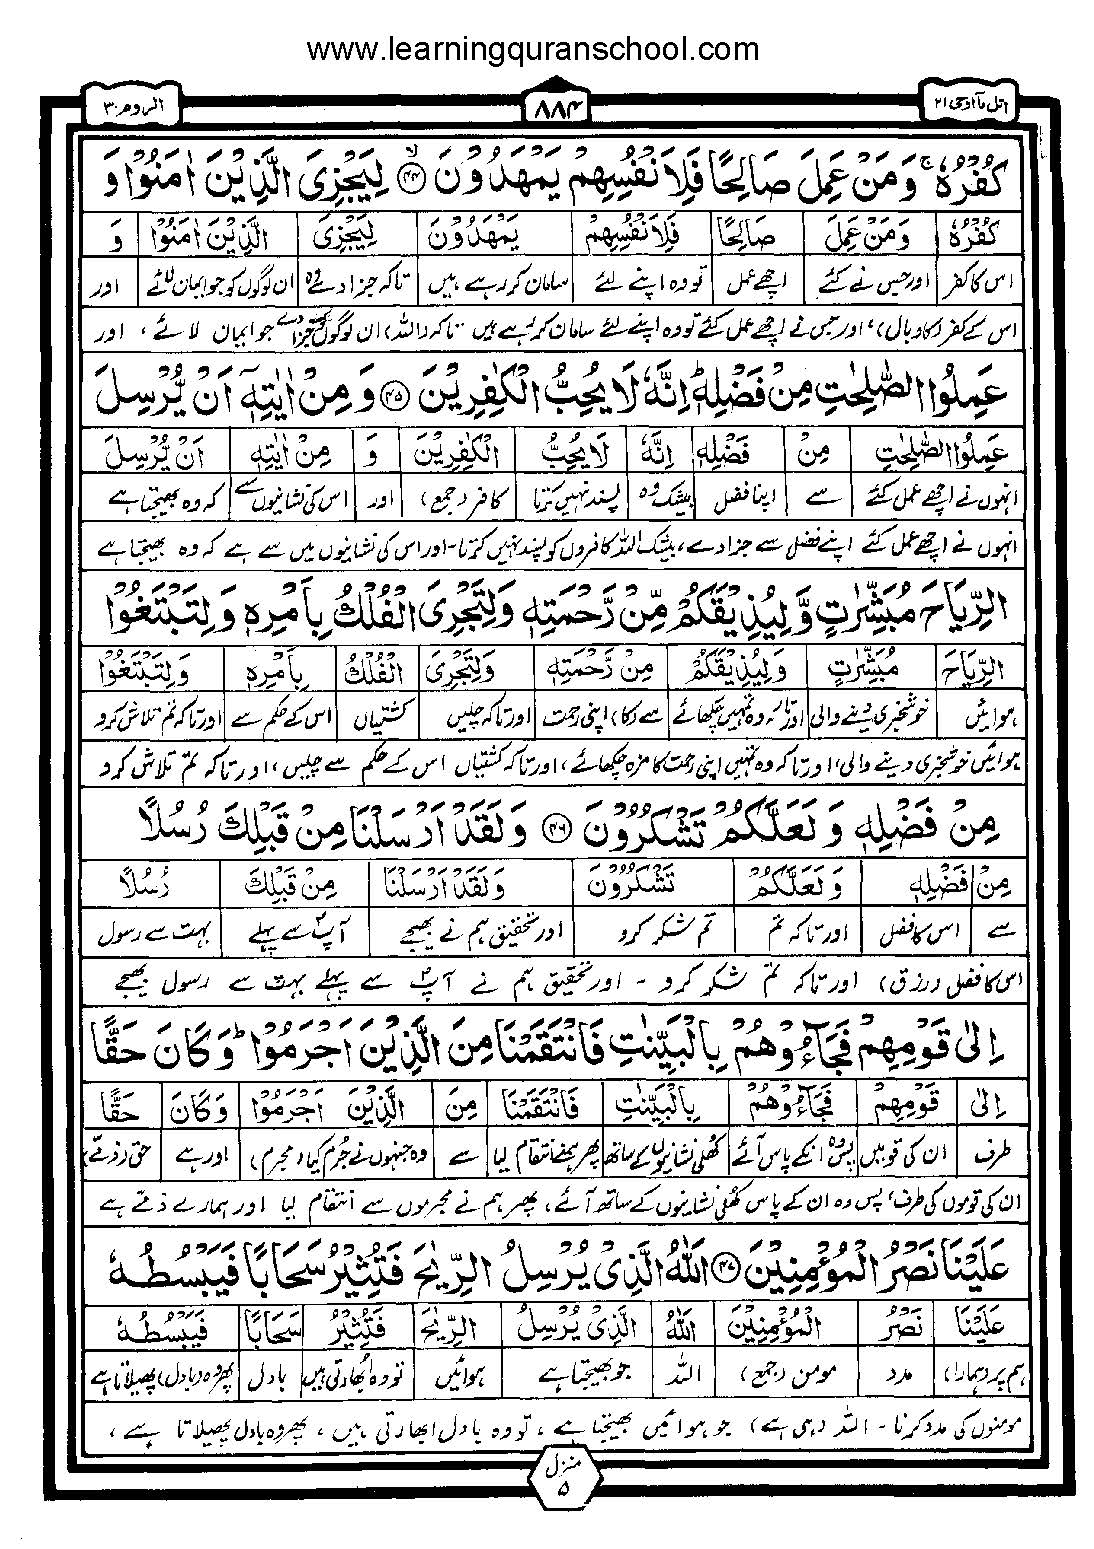 www.learningquranschool.com
اتل مآ اوحی ۲۱
۸۸۴
الروم ۳۰
كُفْرُهٗ ۚ وَ مَنْ عَمِلَ صَالِحًا فَلِاَنْفُسِهِمْ يَمْهَدُوْنَ ﴿۴۴﴾ۙ لِيَجْزِيَ الَّذِيْنَ اٰمَنُوْا وَ
كُفْرُهٗ وَ مَنْ عَمِلَ صَالِحًا فَلِاَنْفُسِهِمْ يَمْهَدُوْنَ لِيَجْزِيَ الَّذِيْنَ اٰمَنُوْا وَ
اس کا کفر اور جس نے کئے اچھے عمل تو وہ اپنے لئے سامان کر رہے ہیں تاکہ جزا دے وہ ان لوگوں کو جو ایمان لائے اور
اس کے کفر (کا وبال)، اور جس نے اچھے عمل کئے تو وہ اپنے لئے سامان کر رہے ہیں تاکہ (اللہ) ان لوگوں کو جزا دے جو ایمان لائے، اور
عَمِلُوا الصّٰلِحٰتِ مِنْ فَضْلِهٖ ؕ اِنَّهٗ لَا يُحِبُّ الْكٰفِرِيْنَ ﴿۴۵﴾ وَ مِنْ اٰيٰتِهٖۤ اَنْ يُّرْسِلَ
عَمِلُوا الصّٰلِحٰتِ مِنْ فَضْلِهٖ اِنَّهٗ لَا يُحِبُّ الْكٰفِرِيْنَ وَ مِنْ اٰيٰتِهٖ اَنْ يُّرْسِلَ
انہوں نے اچھے عمل کئے سے اپنا فضل بیشک وہ پسند نہیں کرتا کافر (جمع) اور اس کی نشانیوں سے کہ وہ بھیجتا ہے
انہوں نے اچھے عمل کئے اپنے فضل سے جزا دے، بیشک اللہ کافروں کو پسند نہیں کرتا۔ اور اس کی نشانیوں میں سے ہے کہ وہ بھیجتا ہے
الرِّيَاحَ مُبَشِّرٰتٍ وَّ لِيُذِيْقَكُمْ مِّنْ رَّحْمَتِهٖ وَ لِتَجْرِيَ الْفُلْكُ بِاَمْرِهٖ وَ لِتَبْتَغُوْا
الرِّيَاحَ مُبَشِّرٰتٍ وَ لِيُذِيْقَكُمْ مِنْ رَّحْمَتِهٖ وَ لِتَجْرِيَ الْفُلْكُ بِاَمْرِهٖ وَ لِتَبْتَغُوْا
ہوائیں خوشخبری دینے والی اور تاکہ وہ تمہیں چکھائے سے (کا) اپنی رحمت اور تاکہ چلیں کشتیاں اس کے حکم سے اور تاکہ تم تلاش کرو
ہوائیں خوشخبری دینے والی، اور تاکہ وہ تمہیں اپنی رحمت کا مزہ چکھائے، اور تاکہ کشتیاں اس کے حکم سے چلیں، اور تاکہ تم تلاش کرو
مِنْ فَضْلِهٖ وَ لَعَلَّكُمْ تَشْكُرُوْنَ ﴿۴۶﴾ وَ لَقَدْ اَرْسَلْنَا مِنْ قَبْلِكَ رُسُلًا
مِنْ فَضْلِهٖ وَ لَعَلَّكُمْ تَشْكُرُوْنَ وَ لَقَدْ اَرْسَلْنَا مِنْ قَبْلِكَ رُسُلًا
سے اس کا فضل اور تاکہ تم تم شکر کرو اور تحقیق ہم نے بھیجے آپؐ سے پہلے بہت سے رسول
اس کا فضل (رزق) اور تاکہ تم شکر کرو ۔ اور تحقیق ہم نے آپؐ سے پہلے بہت سے رسول بھیجے
اِلٰى قَوْمِهِمْ فَجَآءُوْهُمْ بِالْبَيِّنٰتِ فَانْتَقَمْنَا مِنَ الَّذِيْنَ اَجْرَمُوْا ؕ وَ كَانَ حَقًّا
اِلٰى قَوْمِهِمْ فَجَآءُوْهُمْ بِالْبَيِّنٰتِ فَانْتَقَمْنَا مِنَ الَّذِيْنَ اَجْرَمُوْا وَ كَانَ حَقًّا
طرف ان کی قومیں پس وہ انکے پاس آئے کھلی نشانیوں کے ساتھ پھر ہم نے انتقام لیا سے وہ جنہوں نے جُرم کیا (مجرم) اور ہے حق (ذمّے)
ان کی قوموں کی طرف، پس وہ ان کے پاس کھلی نشانیوں کے ساتھ آئے، پھر ہم نے مجرموں سے انتقام لیا اور ہمارے ذمّے ہے
عَلَيْنَا نَصْرُ الْمُؤْمِنِيْنَ ﴿۴۷﴾ اَللّٰهُ الَّذِيْ يُرْسِلُ الرِّيٰحَ فَتُثِيْرُ سَحَابًا فَيَبْسُطُهٗ
عَلَيْنَا نَصْرُ الْمُؤْمِنِيْنَ اَللّٰهُ الَّذِيْ يُرْسِلُ الرِّيٰحَ فَتُثِيْرُ سَحَابًا فَيَبْسُطُهٗ
ہم پر (ہمارا) مدد مومن (جمع) اللہ جو بھیجتا ہے ہوائیں تو وہ اُبھارتی ہیں بادل پھر وہ (بادل) پھیلاتا ہے
مومنوں کی مدد کرنا ۔ اللہ (وہی ہے) جو ہوائیں بھیجتا ہے، تو وہ بادل ابھارتی ہیں، پھر وہ بادل پھیلاتا ہے،
منزل ۵